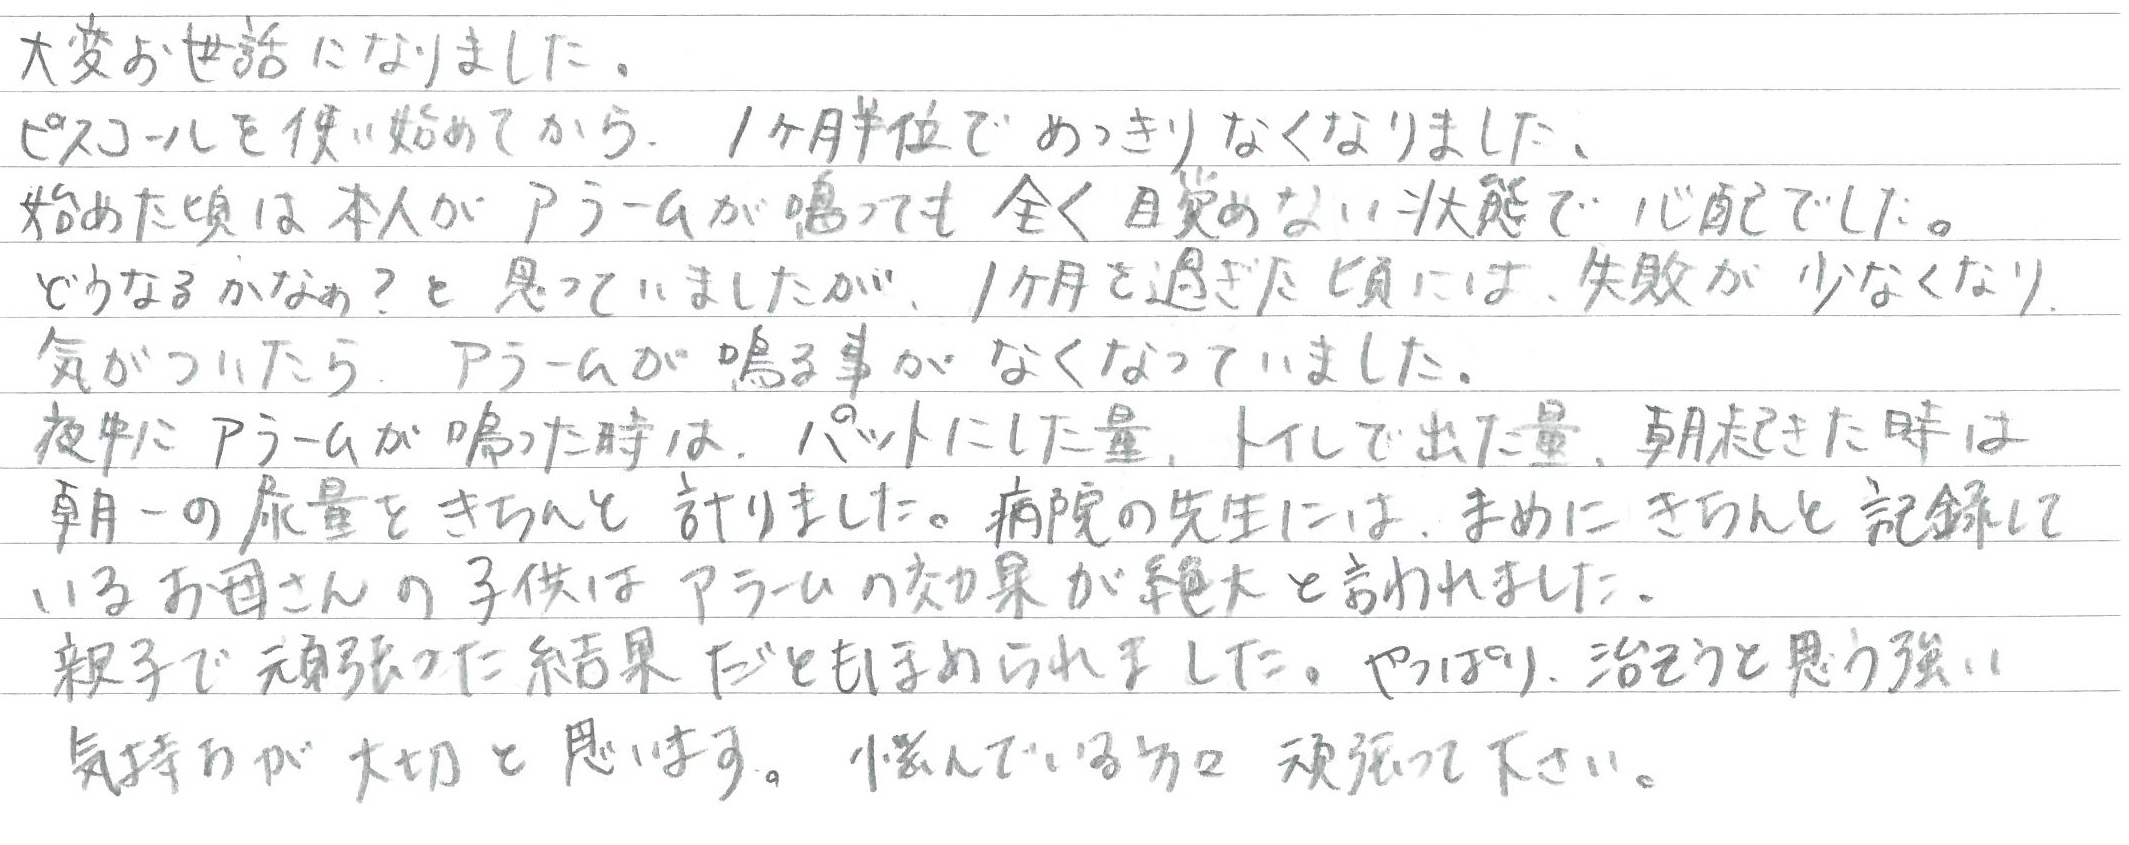 大変お世話になりました。
ピスコールを使い始めてから、1ヶ月半位でめっきりなくなりました、
始めた頃は本人がアラームが鳴っても全く目覚めない状態で心配でした。
どうなるかなぁ?と思っていましたが、1ヶ月を過ぎた頃には、失敗が少なくなり、
気がついたら、アラームが鳴る事がなくなっていました。
夜中にアラームが鳴った時は、パットにした量、トイレで出た量、朝起きた時は
朝一の尿量をきちんと計りました。病院の先生には、まめにきちんと記録して
いるお母さんの子供はアラームの効果が絶大と言われました。
親子で頑張った結果だともほめられました。やっぱり、治そうと思う強い
気持ちが大切と思います。悩んでいる方々頑張って下さい。